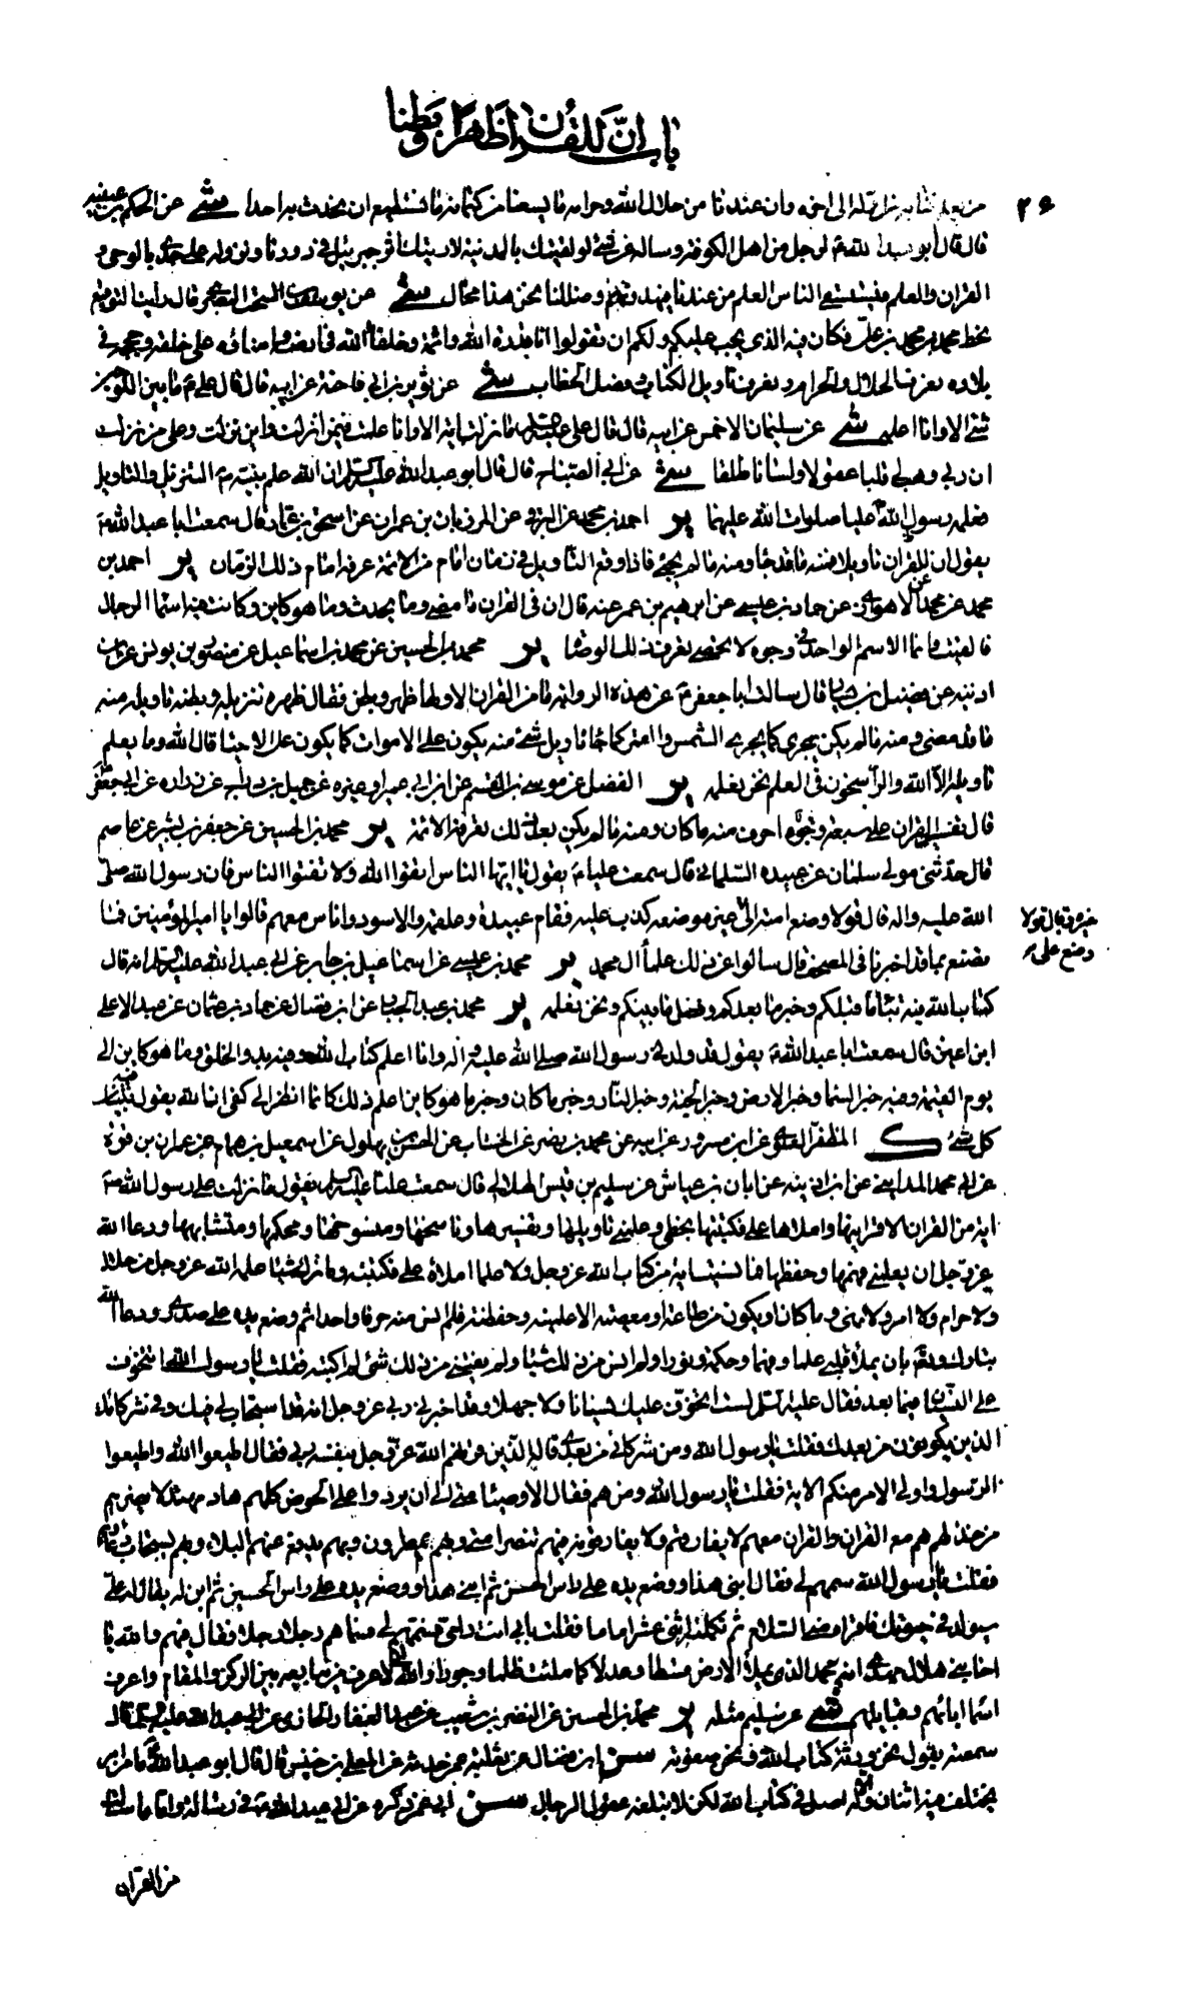 باب انّ للقرآن ظهرا وبطنا
٢٦
وان عندنا من حلال الله وحرامه ما يسعنا من كتمانه ما نستطيع ان نحدث به احدا شى عن الحكم بن عيينه
قال قال ابو عبد الله ع لرجل من اهل الكوفة وساله عن شئ لو لقيتك بالمدينة لاريتك اثر جبرئيل فى دورنا ونزوله على جدى بالوحى و
القران والعلم فيستسقى الناس العلم من عندنا فيهدونهم وضللنا نحن هذا محال شى عن يوسف بن السخت البصرى قال رايت التوقيع
بخط محمد بن محمد بن على فكان فيه الذى يجب عليكم ولكم ان تقولوا انا قدوة الله وائمة وخلفاء الله فى ارضه وامنائه على خلقه وحججه فى
بلاده نعرف الحلال والحرام ونعرف تاويل الكتاب وفصل الخطاب شى عن ثوير بن ابى فاختة عن ابيه قال قال على ع ما بين اللوحين
شئ الا وانا اعلمه شى عن سليمان الاعمش عن ابيه قال قال على ما نزلت اية الا وانا علمت فيمن انزلت واين نزلت وعلى من نزلت
ان ربى وهب لى قلبا عقولا ولسانا طلقا شى عن ابى الصباح قال قال ابو عبد الله عليه السلم ان الله علم نبيه ص التنزيل والتاويل
فعلمه رسول الله عليا صلوات الله عليهما ير احمد بن محمد عن البرقى عن المرزبان بن عمران عن اسحق بن عمار قال سمعت ابا عبد الله ع
يقول ان للقران تاويلا فمنه ما قد جاء ومنه ما لم يجئ فاذا وقع التاويل فى زمان امام من الائمة عرفه امام ذلك الزمان ير احمد بن
محمد عن الاهوازى عن حماد بن عيسى عن ابرهيم بن عمر عنه قال ان فى القران ما مضى وما يحدث وما هو كاين وكانت فيه اسماء الرجال
فالقيت وانما الاسم الواحد فى وجوه لا تحصى تعرف ذلك الوصاة ير محمد بن الحسين عن محمد بن اسماعيل عن منصور بن يونس عن ابن
اذينه عن فضيل بن يسار قال سالت ابا جعفر ع عن هذه الرواية ما من القران الا ولها ظهر وبطن فقال ظهره تنزيله وبطنه تاويله منه
ما قد مضى ومنه ما لم يكن يجرى كما يجرى الشمس والقمر كما جاء تاويل شئ منه يكون على الاموات كما يكون على الاحياء قال الله وما يعلم
تاويله الا الله والراسخون فى العلم نحن نعلمه ير الفضل عن موسى بن القسم عن ابن ابى عمير او غيره عن جميل بن دراج عن زراره عن ابى جعفر
قال تفسير القران على سبعة احرف منه ما كان ومنه ما لم يكن بعد ذلك تعرفه الائمة ير محمد بن الحسين عن جعفر بن بشير عن عاصم
قال حدثنى مولى سلمان عن عبيده السلمانى قال سمعت عليا ع يقول يا ايها الناس اتقوا الله ولا تفتوا الناس فان رسول الله صلى
الله عليه واله قال قولا وضع امته الى غير موضعه كذب عليه فقام عبيدة وعلقمة والاسود واناس معهم قالوا يا امير المؤمنين فما
نصنع بما قد اخبرنا فى المصحف قال سالوا عن ذلك علماء ال محمد ير محمد بن عيسى عن اسماعيل بن جابر عن ابى عبد الله عليه السلم انه قال
كتاب الله فيه نبأ ما قبلكم وخبر ما بعدكم وفصل ما بينكم ونحن نعلمه ير محمد بن عبد الجبار عن ابن فضال عن حماد بن عثمان عن عبد الاعلى
ابن اعين قال سمعت ابا عبد الله ع يقول قد ولدنى رسول الله صلى الله عليه واله وانا اعلم كتاب الله وفيه بدو الخلق وما هو كاين الى
يوم القيمة وفيه خبر السماء وخبر الارض وخبر الجنة وخبر النار وخبر ما كان وخبر ما هو كاين اعلم ذلك كانما انظر الى كفى ان الله يقول فيه تبيان
كل شئ ك المظفر العلوى عن ابن مسرور عن ابيه عن محمد بن نصير عن الخشاب عن الحسن بن بهلول عن اسمعيل بن همام عن عمران بن قرة
عن ابى محمد المدائنى عن ابن اذينه عن ابان بن عياش عن سليم بن قيس الهلالى قال سمعت عليا عليه السلم يقول ما نزلت على رسول الله ص
اية من القران الا اقرأنيها واملاها على فكتبتها بخطى وعلمنى تاويلها وتفسيرها وناسخها ومنسوخها ومحكمها ومتشابهها ودعا الله
عز وجل ان يعلمنى فهمها وحفظها فما نسيت اية من كتاب الله عز وجل ولا علما املاه على فكتبته وما ترك شيئا علمه الله عز وجل من حلال
ولا حرام ولا امر ولا نهى وما كان او يكون من طاعة او معصية الا علمنيه وحفظته فلم انس منه حرفا واحدا ثم وضع يده على صدرى ودعا الله
تبارك وتعالى بان يملأ قلبى علما وفهما وحكمة ونورا ولم انس من ذلك شيئا ولم يفتنى من ذلك شئ لم اكتبه فقلت يا رسول الله اتتخوف
على النسيان فيما بعد فقال عليه السلم لست اتخوف عليك نسيانا ولا جهلا وقد اخبرنى ربى عز وجل انه قد استجاب لى فيك وفى شركائك
الذين يكونون من بعدك فقلت يا رسول الله ومن شركائى من بعدى قال الذين قرنهم الله عز وجل بنفسه وبى فقال اطيعوا الله واطيعوا
الرسول واولى الامر منكم الاية فقلت يا رسول الله ومن هم فقال الاوصياء منى الى ان يردوا على الحوض كلهم هاد مهتد لا يضرهم
من خذلهم هم مع القران والقران معهم لا يفارقهم ولا يفارقونه فبهم تنصر امتى وبهم يمطرون وبهم يدفع عنهم البلاء وبهم يستجاب دعاؤهم
فقلت يا رسول الله سمهم لى فقال ابنى هذا ووضع يده على راس الحسن ثم ابنى هذا ووضع يده على راس الحسين ثم ابن له يقال له على
سيولد فى حيوتك فاقرأه منى السلام ثم تكمله اثنى عشر اماما فقلت بابى انت وامى فسمهم لى فسماهم رجلا رجلا فقال فيهم والله يا
اخا بنى هلال مهدى امة محمد الذى يملأ الارض قسطا وعدلا كما ملئت ظلما وجورا والله انى لاعرف من يبايعه بين الركن والمقام واعرف
اسماء ابائهم وقبايلهم شى عن سليم مثله ير محمد بن الحسين عن النضر بن شعيب عن عبد الغفار الجازى عن ابى عبد الله عليه السلم قال
سمعته يقول نحن ورثة كتاب الله ونحن صفوته سن ابن فضال عن ثعلبة عمن حدثه عن المعلى بن خنيس قال قال ابو عبد الله ع ما من امر
يختلف فيه اثنان الا وله اصل فى كتاب الله لكن لا تبلغه عقول الرجال سن ابى عمن ذكره عن ابى عبد الله ع فى رسالة واما ما سئلت
خبره قال قولا
وضع على
من القرآن